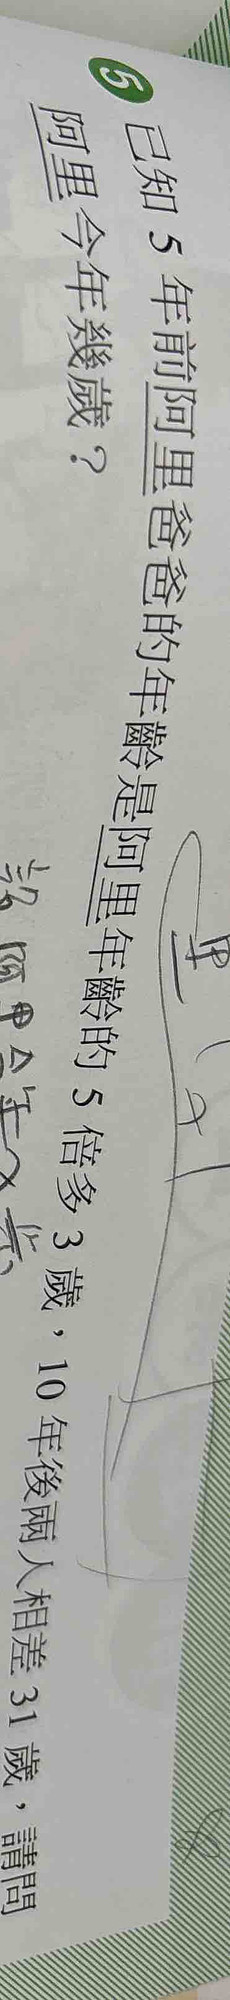 5 已知 5 年前阿里爸爸的年齡是阿里年齡的 5 倍多 3 歲，10 年後兩人相差 31 歲，請問
阿里今年幾歲？
里
設阿里今年x歲